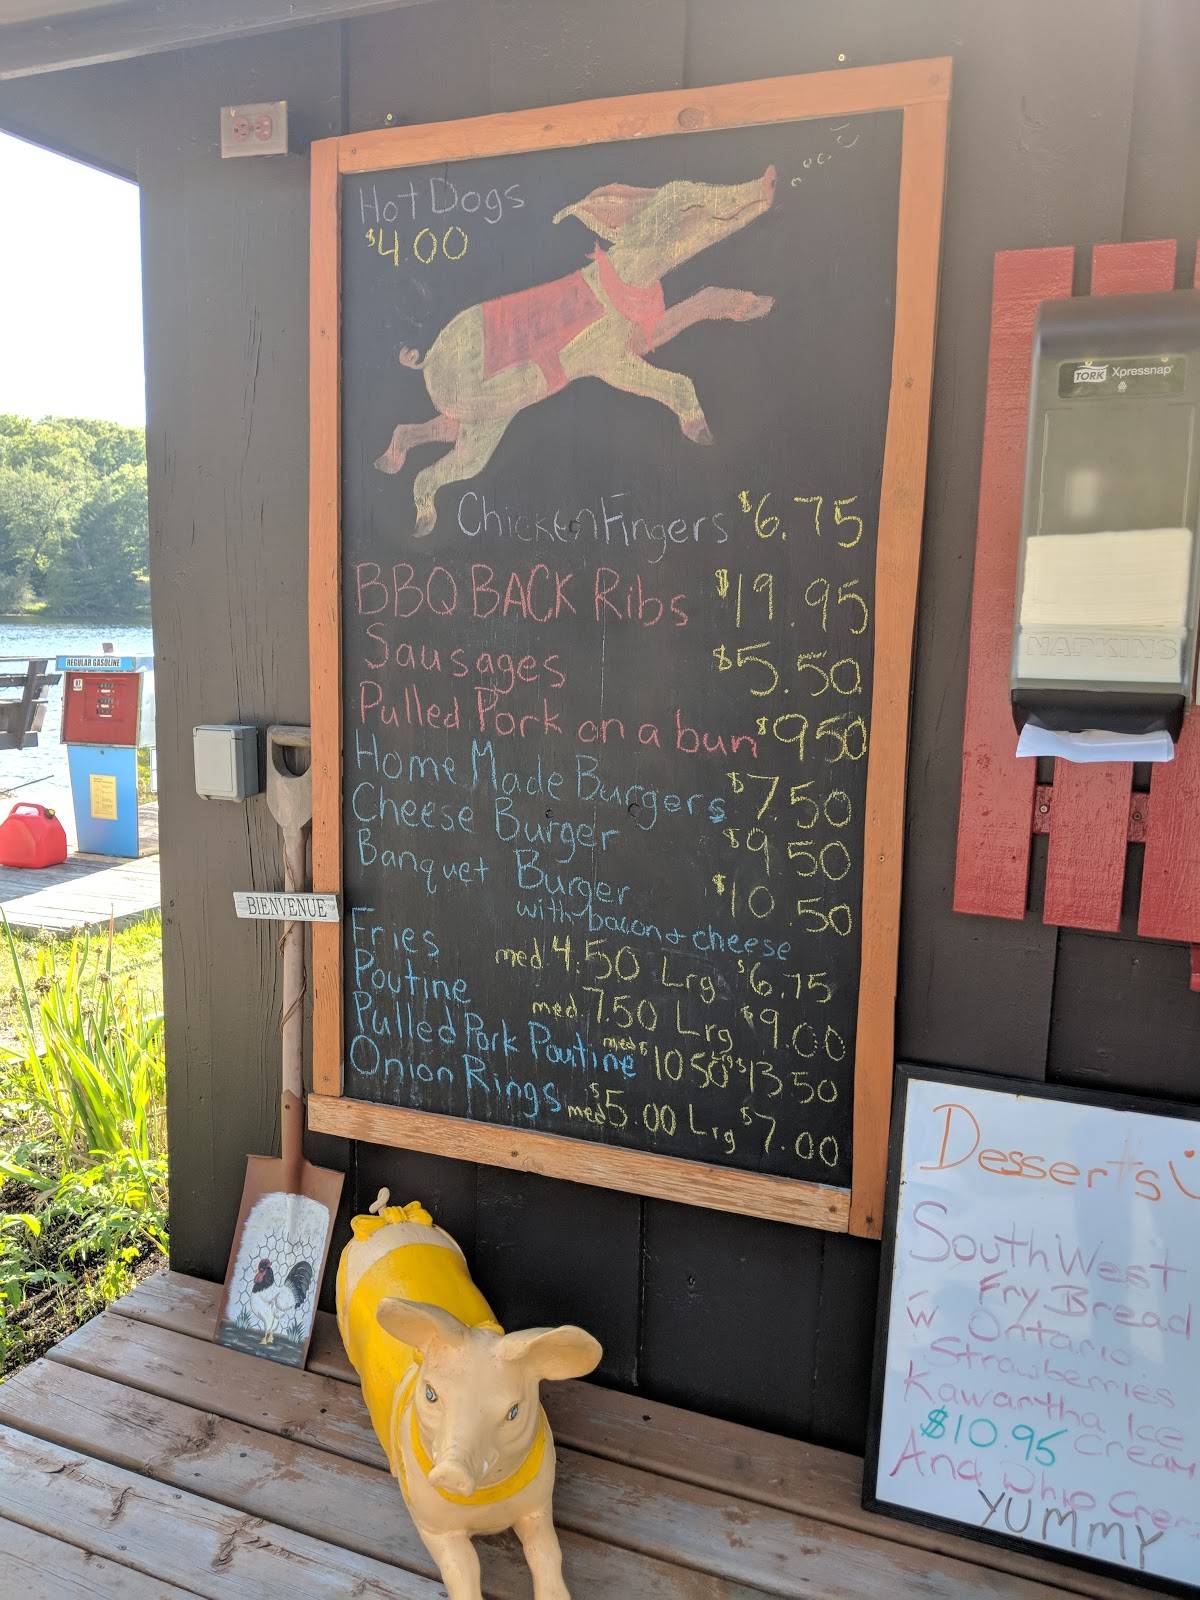 Hot Dogs
$4.00
Chicken Fingers $6.75
BBQ BACK Ribs $19.95
Sausages $5.50
Pulled Pork on a bun $9.50
Home Made Burgers $7.50
Cheese Burger $9.50
Banquet Burger $10.50
with bacon + cheese
Fries med. 4.50 Lrg $6.75
Poutine med. 7.50 Lrg $9.00
Pulled Pork Poutine med $10.50 Lrg $13.50
Onion Rings med $5.00 Lrg $7.00
TORK Xpressnap
NAPKINS
REGULAR GASOLINE
BIENVENUE
Desserts
SouthWest
Fry Bread
w Ontario
Strawberries
Kawartha Ice
$10.95 Cream
And Whip Cre
YUMMY